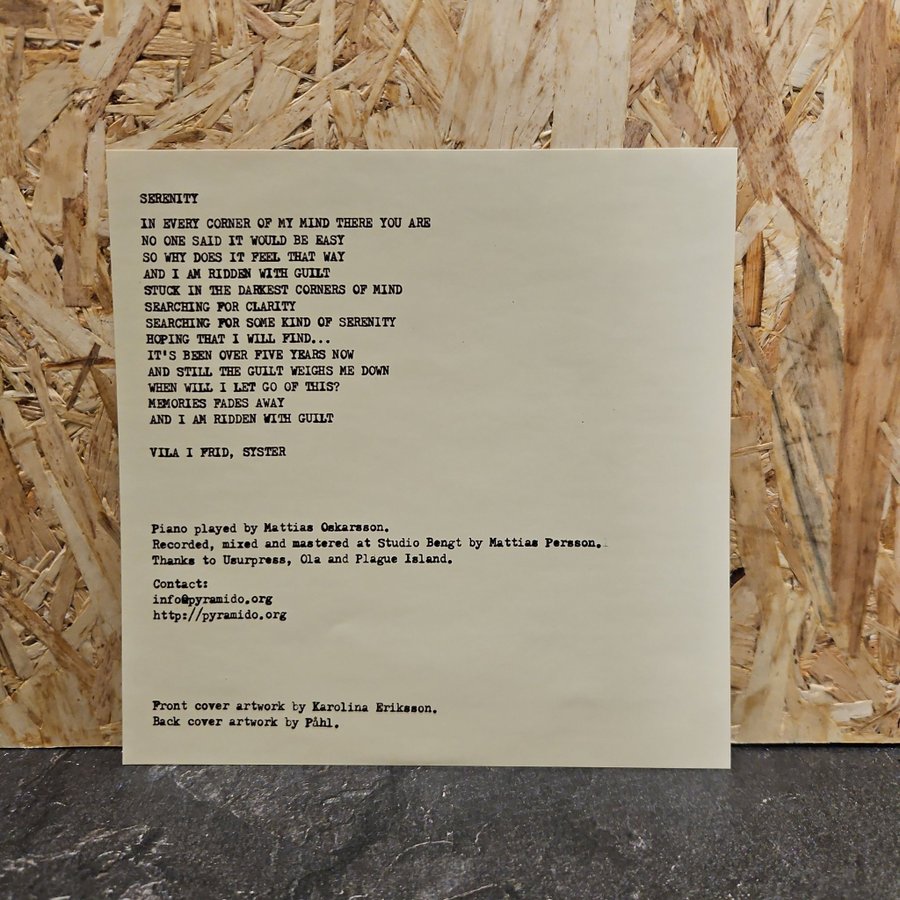 SERENITY
IN EVERY CORNER OF MY MIND THERE YOU ARE
NO ONE SAID IT WOULD BE EASY
SO WHY DOES IT FEEL THAT WAY
AND I AM RIDDEN WITH GUILT
STUCK IN THE DARKEST CORNERS OF MIND
SEARCHING FOR CLARITY
SEARCHING FOR SOME KIND OF SERENITY
HOPING THAT I WILL FIND...
IT'S BEEN OVER FIVE YEARS NOW
AND STILL THE GUILT WEIGHS ME DOWN
WHEN WILL I LET GO OF THIS?
MEMORIES FADES AWAY
AND I AM RIDDEN WITH GUILT
VILA I FRID, SYSTER
Piano played by Mattias Oskarsson.
Recorded, mixed and mastered at Studio Bengt by Mattias Persson.
Thanks to Usurpress, Ola and Plague Island.
Contact:
info@pyramido.org
http://pyramido.org
Front cover artwork by Karolina Eriksson.
Back cover artwork by Påhl.